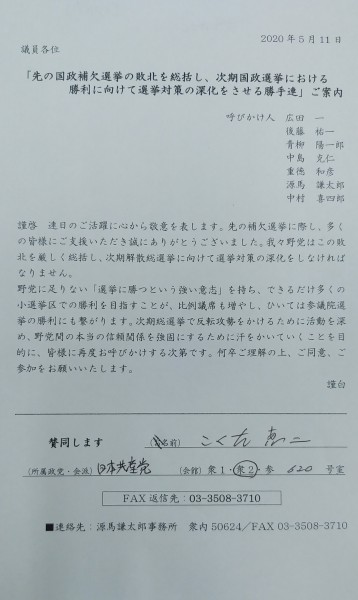 2020年5月11日
議員各位
「先の国政補欠選挙の敗北を総括し、次期国政選挙における
勝利に向けて選挙対策の深化をさせる勝手連」ご案内
呼びかけ人 広田 一
後藤 祐一
青柳 陽一郎
中島 克仁
重徳 和彦
源馬 謙太郎
中村 喜四郎
謹啓 連日のご活躍に心から敬意を表します。先の補欠選挙に際し、多く
の皆様にご支援いただき誠にありがとうございました。我々野党はこの敗
北を厳しく総括し、次期解散総選挙に向けて選挙対策の深化をしなければ
なりません。
野党に足りない「選挙に勝つという強い意志」を持ち、できるだけ多くの
小選挙区での勝利を目指すことが、比例議席も増やし、ひいては参議院選
挙の勝利にも繋がります。次期総選挙で反転攻勢をかけるために活動を深
め、野党間の本当の信頼関係を強固にするために汗をかいていくことを目
的に、皆様に再度お呼びかけする次第です。何卒ご理解の上、ご同意、ご
参加をお願いいたします。
謹白
賛同します (お名前) こくた 恵二
(所属政党・会派) 日本共産党 (会館) 衆1・衆2・参 620 号室
FAX返信先：03-3508-3710
■連絡先：源馬謙太郎事務所 衆内50624／FAX 03-3508-3710